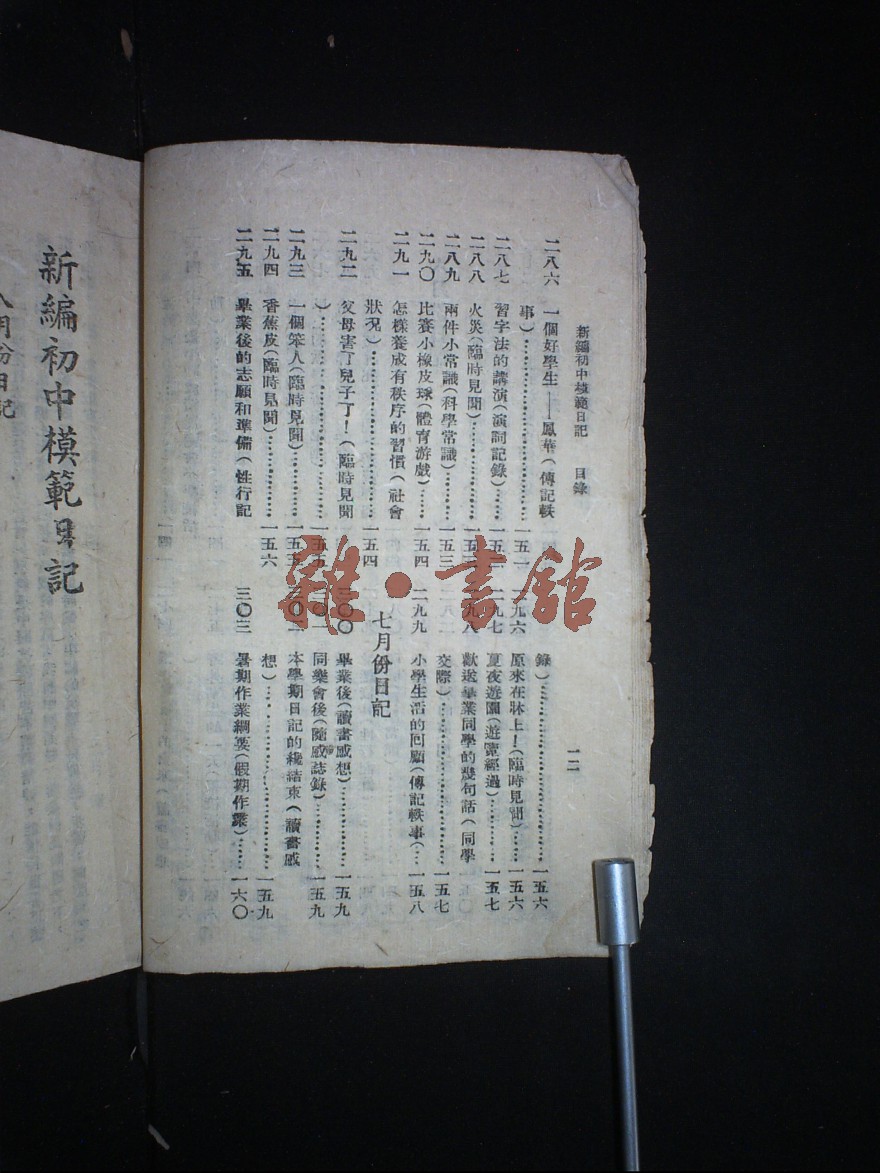 新編初中模範日記　目錄　一二
二八六　一個好學生——鳳華(傳記軼
事)……………………一五一
二八七　習字法的講演(演詞記錄)……一五二
二八八　火災(臨時見聞)……………
二八九　兩件小常識(科學常識)……一五三
二九〇　比賽小橡皮球(體育游戲)……一五四
二九一　怎樣養成有秩序的習慣(社會
狀況)……………………一五四
二九二　父母害了兒子了!(臨時見聞
)……………………一五五
二九三　一個笨人(臨時見聞)…………一五五
二九四　香蕉皮(臨時見聞)……………一五六
二九五　畢業後的志願和準備(性行記
錄)……………………一五六
二九六　原來在牀上!(臨時見聞)……一五六
二九七　夏夜遊園(遊覽經過)…………一五七
二九八　歡送畢業同學的幾句話(同學
交際)……………………一五七
二九九　小學生活的回顧(傳記軼事)…一五八
七月份日記
三〇〇　畢業後(讀書感想)……………一五九
三〇一　同樂會後(隨感誌錄)…………一五九
三〇二　本學期日記的總結束(讀書感
想)……………………一五九
三〇三　暑期作業綱要(假期作業)……一六〇
新編初中模範日記
八月份日記
雜·書館